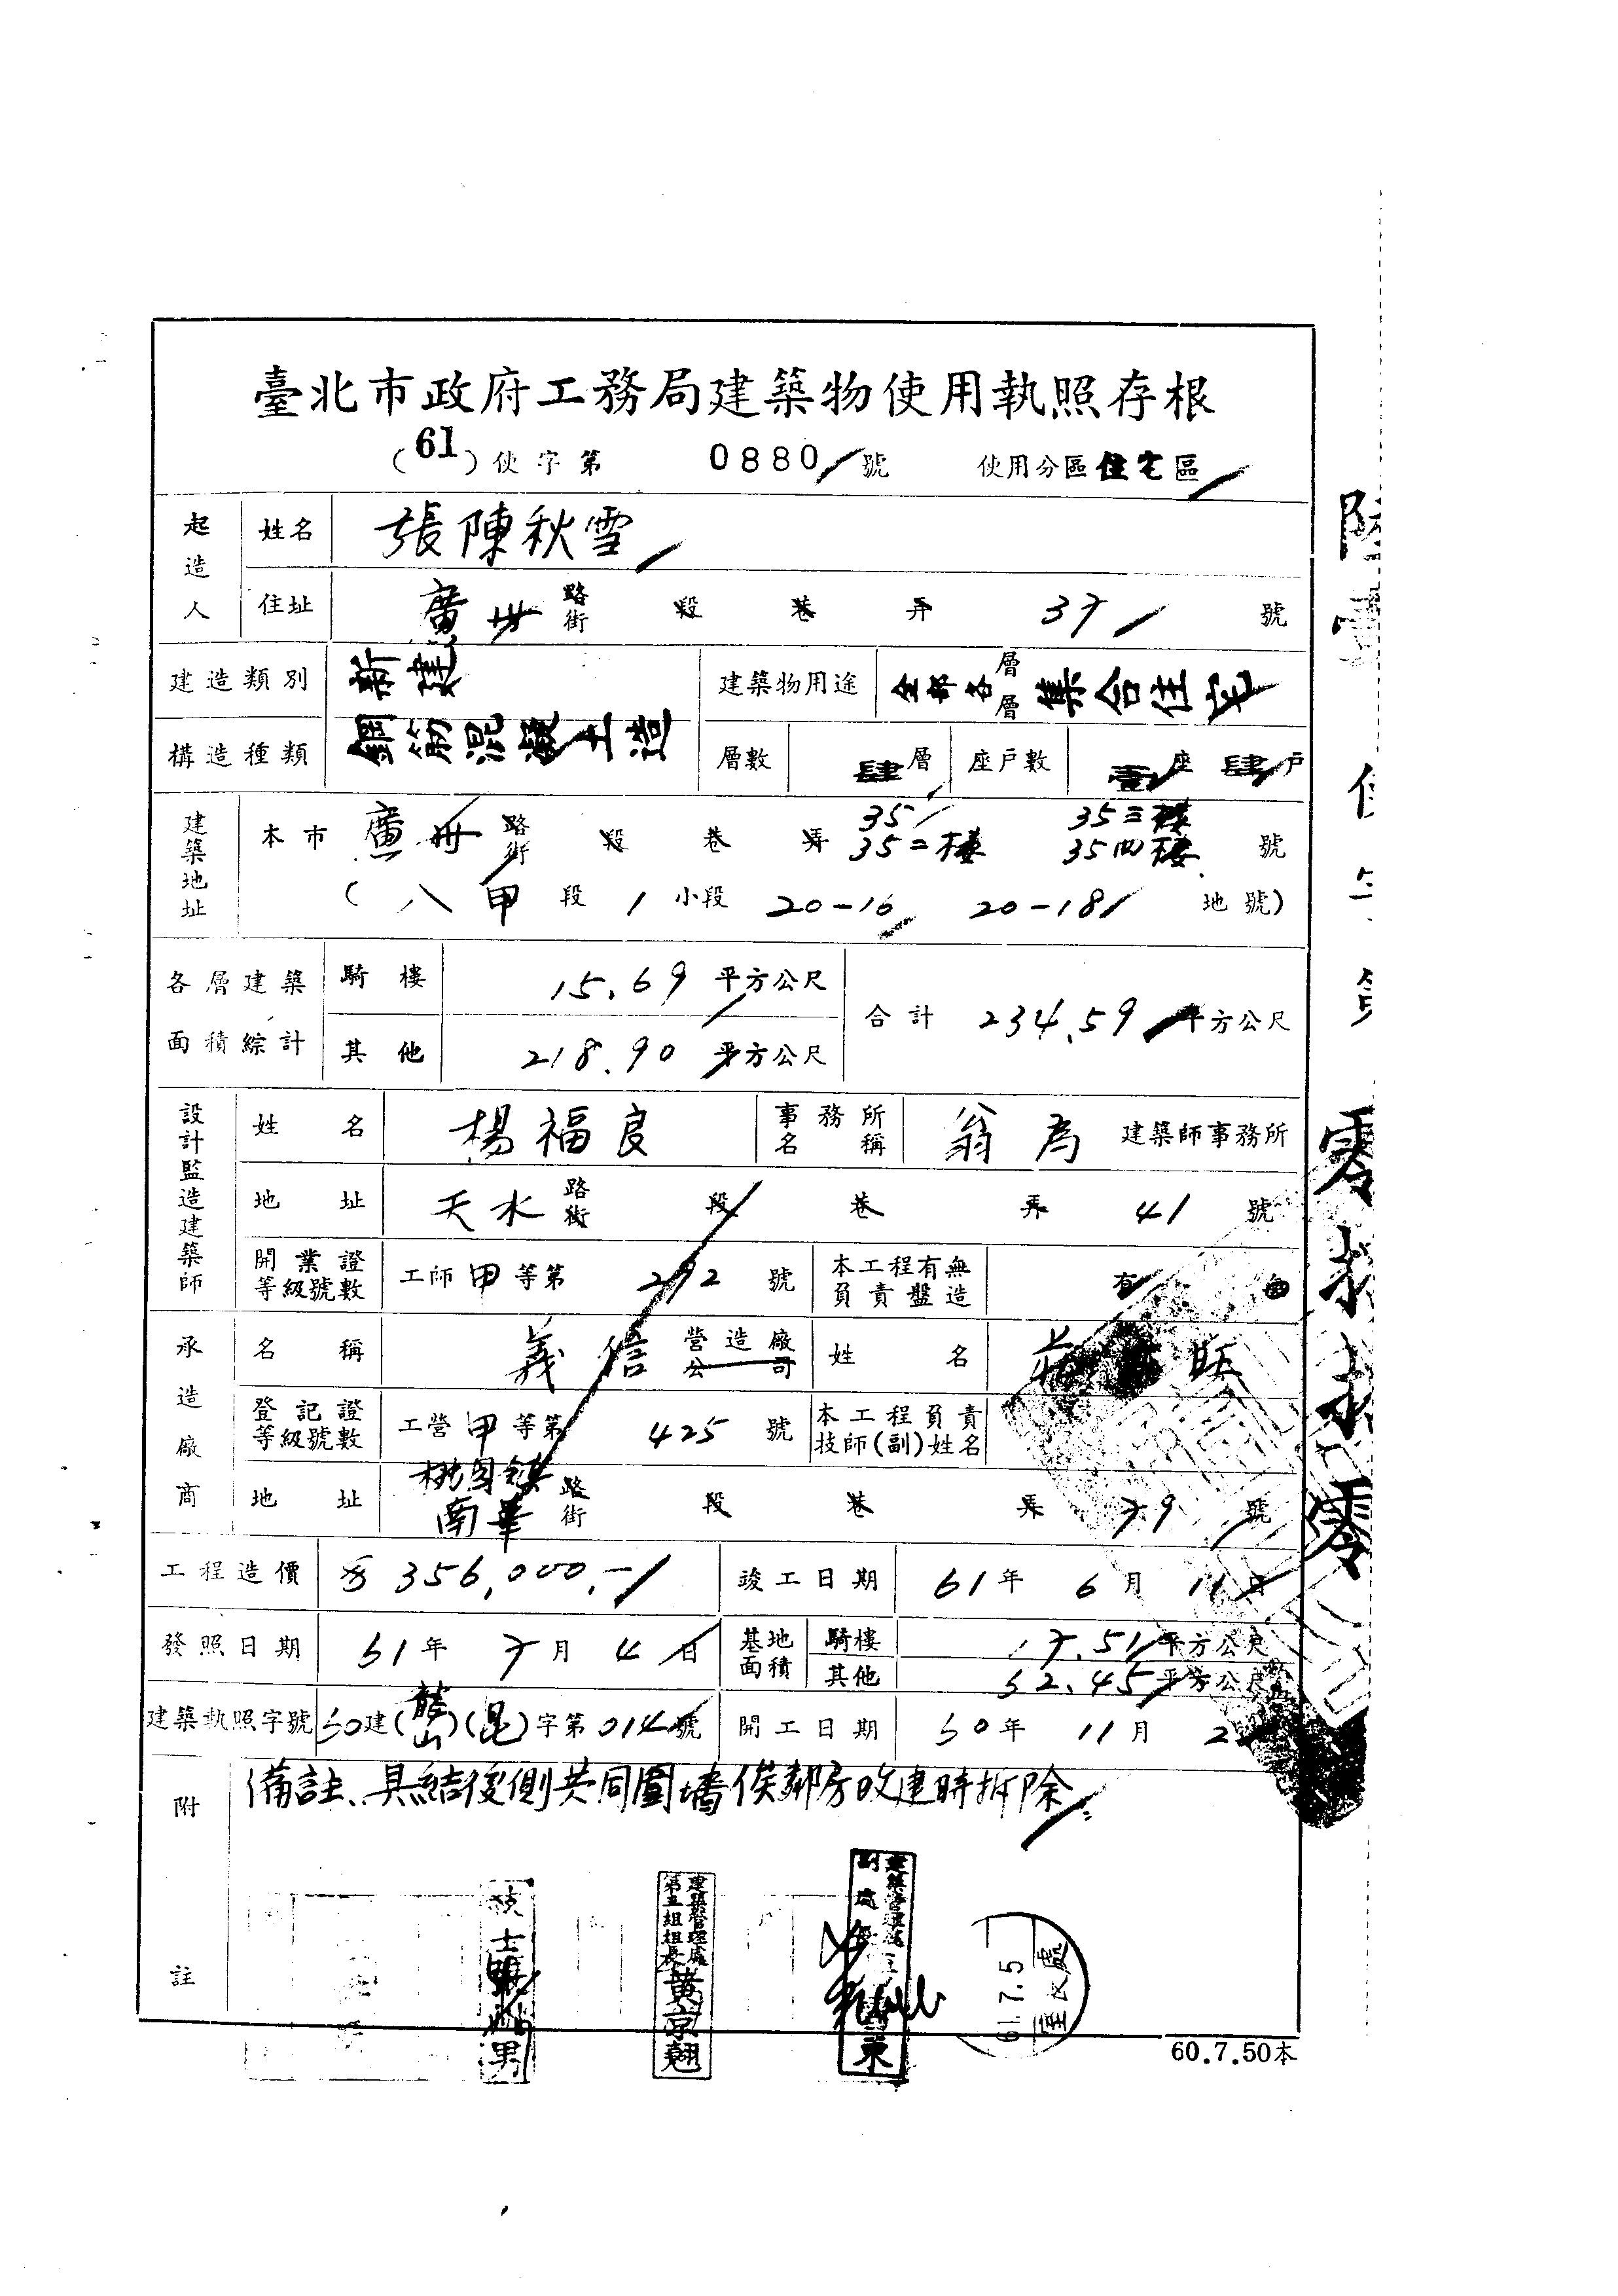 臺北市政府工務局建築物使用執照存根
(61)使字第 0880 號 使用分區住宅區
起造人 姓名 張陳秋雪
住址 廣州 路街 段 巷 弄 37 號
建造類別 新建 建築物用途 全部各層層 集合住宅
構造種類 鋼筋混凝土造 層數 肆層 座戶數 壹座 肆戶
建築地址 本市 廣州 路街 段 巷 弄 35 35二樓 35三樓 35四樓 號
(八甲段 1 小段 20-16 20-18 地號)
各層建築面積綜計 騎樓 15.69 平方公尺 合計 234.59 平方公尺
其他 218.90 平方公尺
設計監造建築師 姓名 楊福良 事務所名稱 翁為 建築師事務所
地址 天水 路街 段 巷 弄 41 號
開業證等級號數 工師甲等第 292 號 本工程有無負責盤造 有
承造廠商 名稱 義信 營造廠公司 姓名 旺
登記證等級號數 工營甲等第 425 號 本工程負責技師(副)姓名
地址 桃園鎮南華 路街 段 巷 弄 79 號
工程造價 356,000.- 竣工日期 61年 6月 11日
發照日期 61年 7月 4日 基地面積 騎樓 17.51 平方公尺
其他 62.45 平方公尺
建築執照字號 60建( )(昆)字第014號 開工日期 60年 11月 2
附註 備註、具結後側共同圍墻俟鄰房改建時拆除
技士 男
建築管理處第五組組長 黃京翹
副處長 東
61.7.5
60.7.50本
零捌捌零